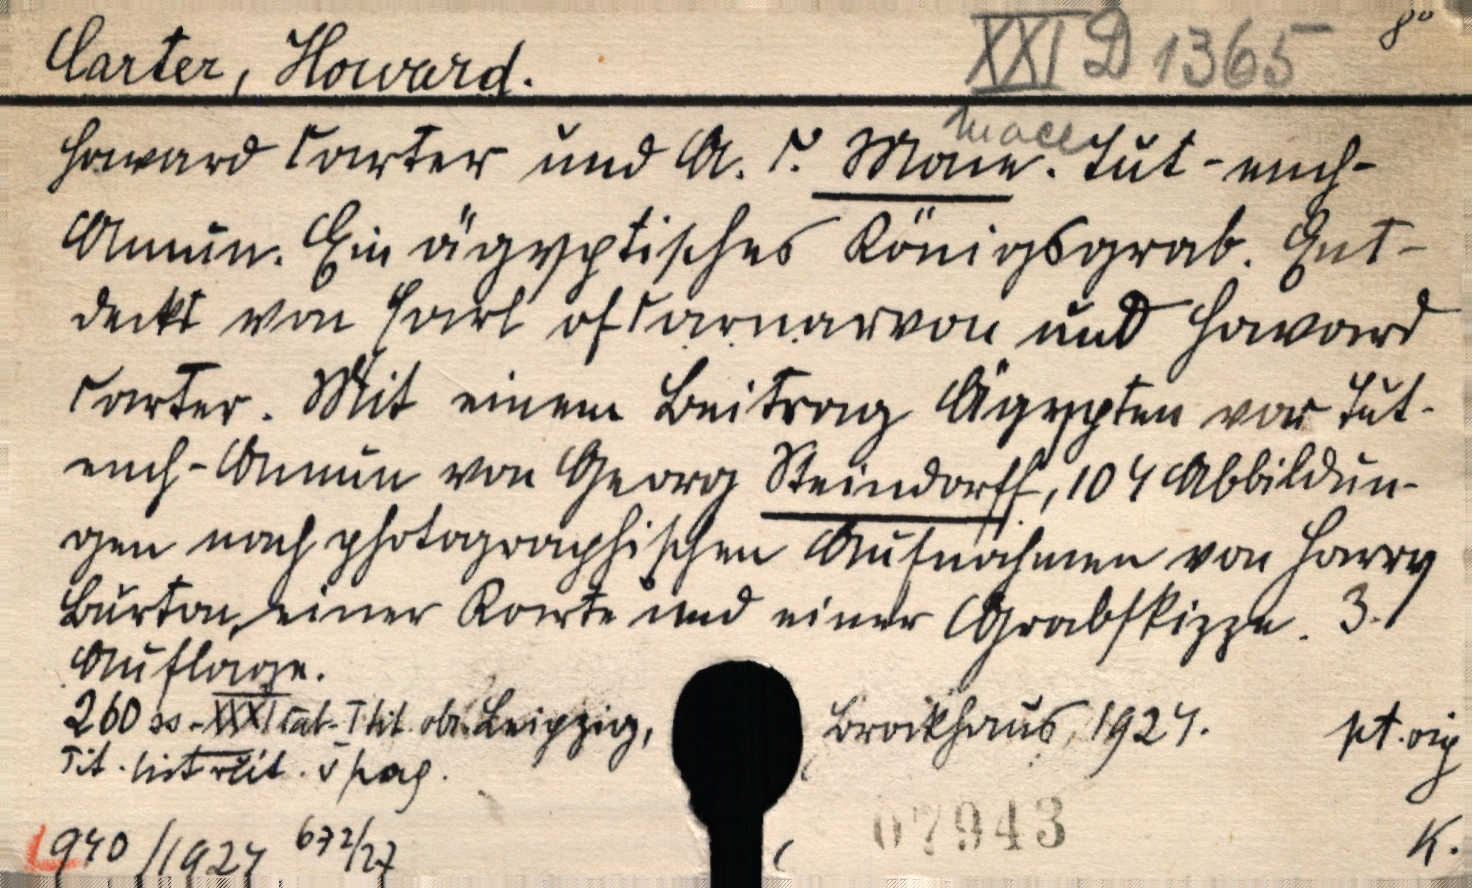 Carter, Howard. XXI D 1365 8°
Mace
Howard Carter und A. C. Mace. Tut-ench-
Amun. Ein ägyptisches Königsgrab. Ent-
deckt von Earl of Carnarvon und Howard
Carter. Mit einem Beitrag Ägypten vor Tut-
ench-Amun von Georg Steindorff, 104 Abbildun-
gen nach photographischen Aufnahmen von Harry
Burton, einer Karte und einer Grabskizze. 3.
Auflage.
260 ss - XXXI tab - 1 tit. Leipzig, Brockhaus, 1924.
Tit. pag.
940/1924 672/27 07943 K.